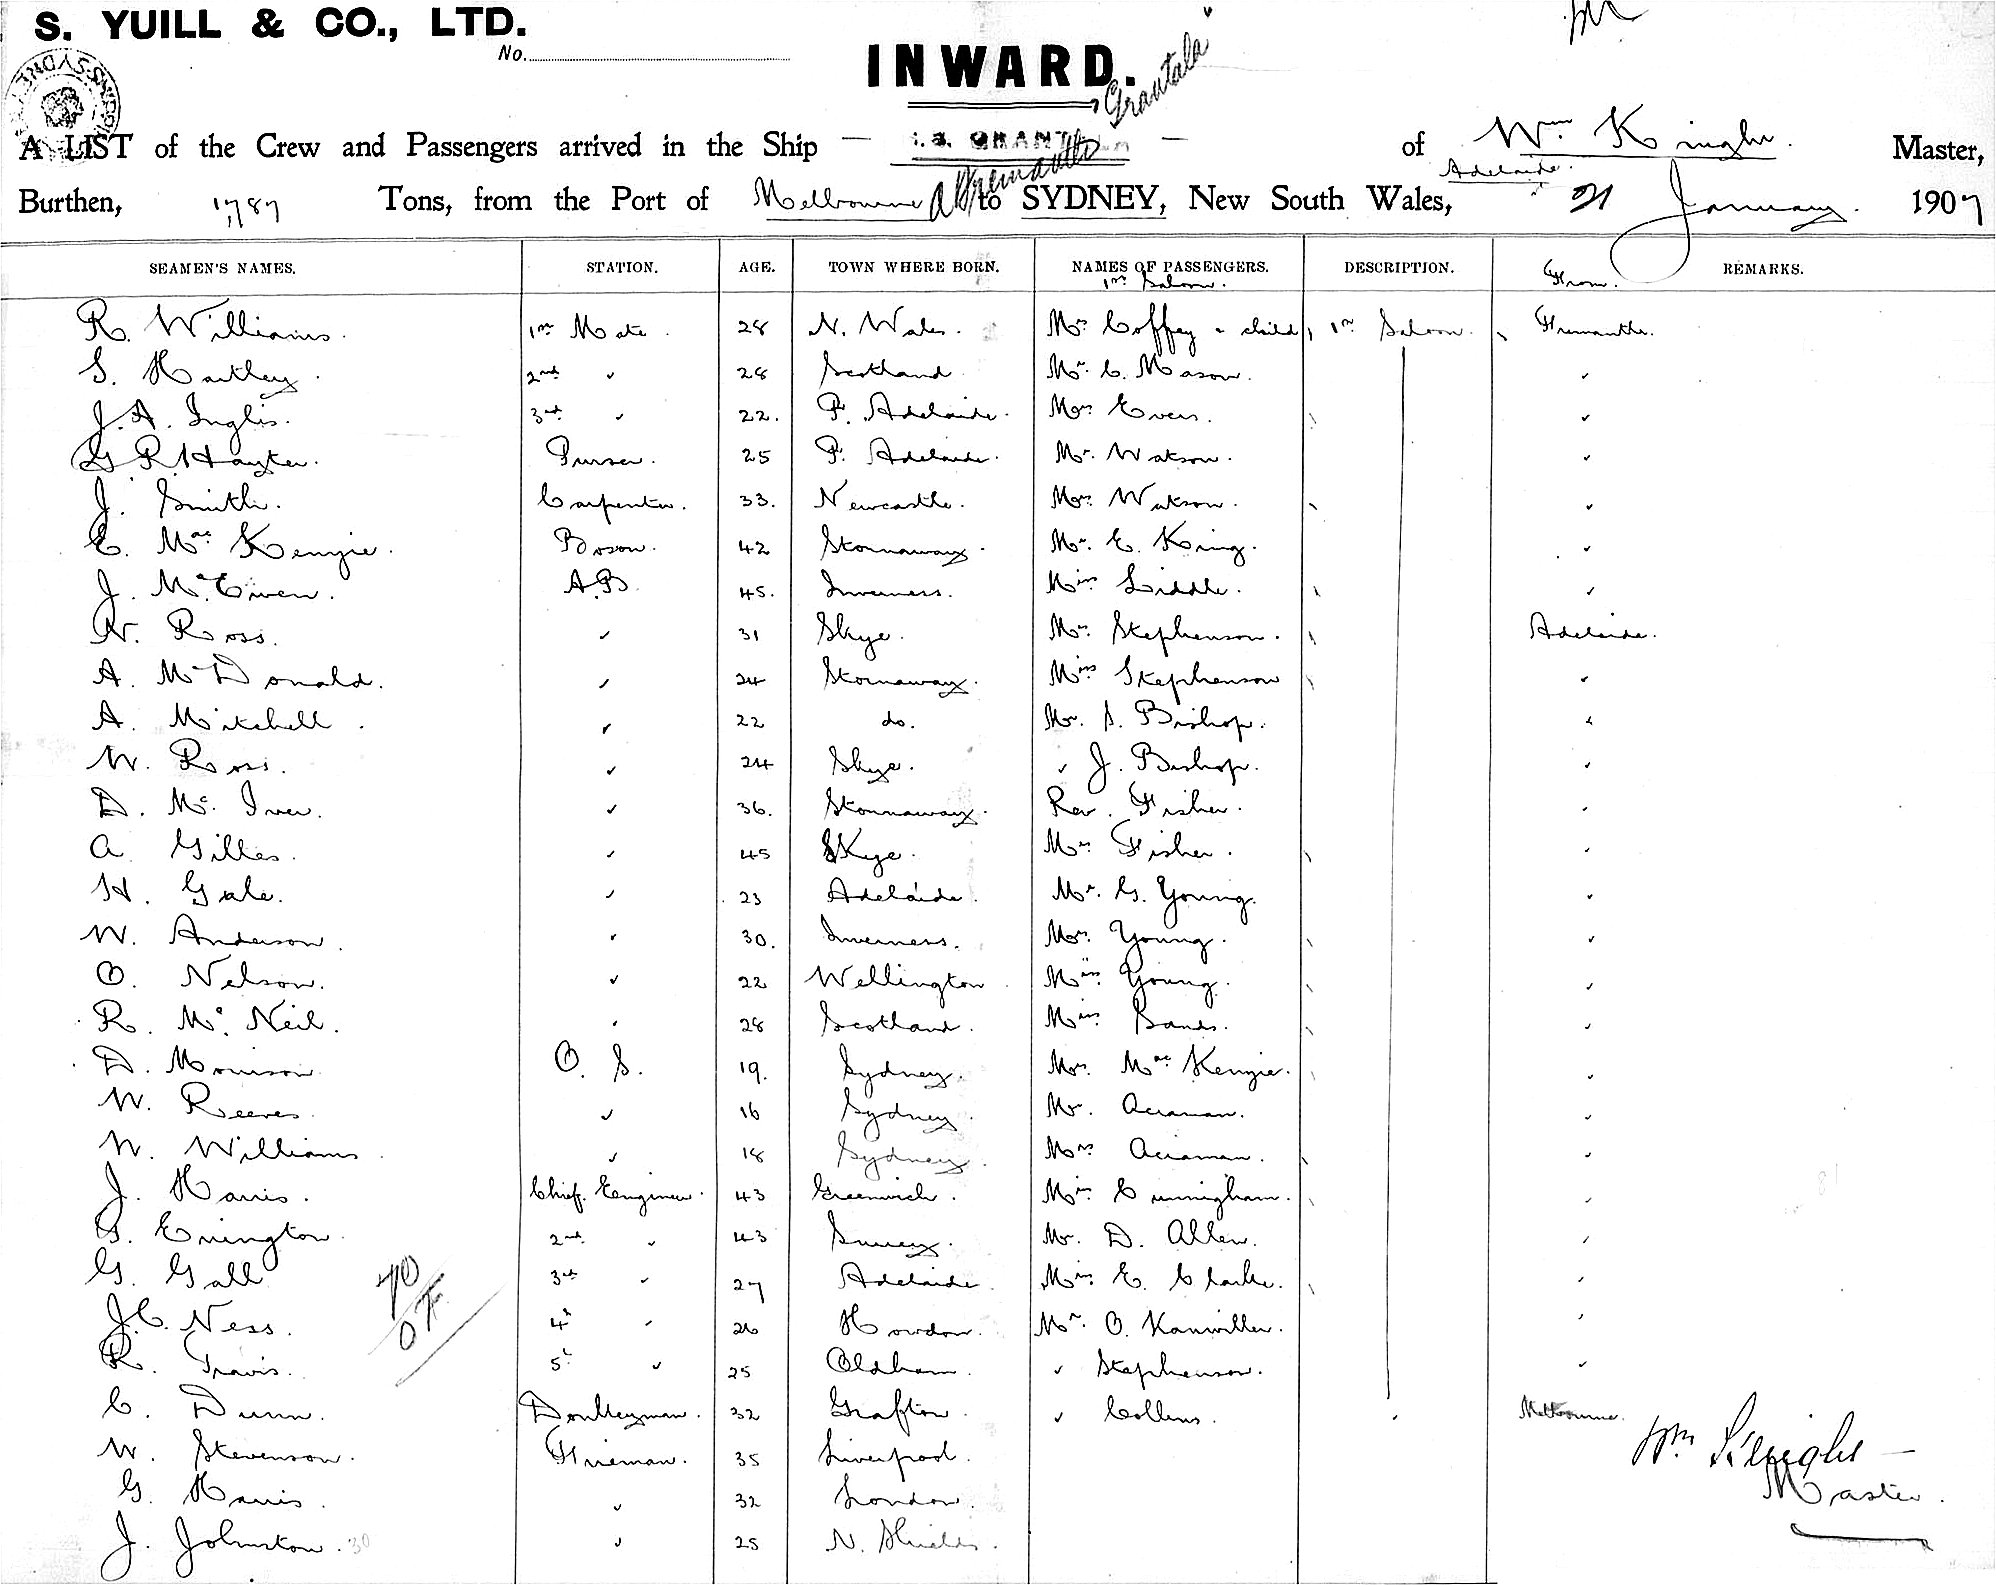 S. YUILL & CO., LTD.
No.
INWARD.
Grantala
A LIST of the Crew and Passengers arrived in the Ship — S.S. GRANTALA — of Wm Knight Master,
Adelaide.
Burthen, 1,787 Tons, from the Port of Melbourne Fremantle to SYDNEY, New South Wales, 21 January. 1907
SEAMEN'S NAMES. STATION. AGE. TOWN WHERE BORN. NAMES OF PASSENGERS. DESCRIPTION. From. REMARKS.
1st Saloon.
R. Williams. 1st Mate. 28 N. Wales. Mrs Coffey & child 1st Saloon. Fremantle.
S. Hartley. 2nd " 28 Scotland Mr. C. Mason. "
J. A. Inglis. 3rd " 22. P. Adelaide. Mrs Evers. "
G R Hayter. Purser. 25 P. Adelaide. Mr. Watson. "
J. Smith. Carpenter. 33. Newcastle. Mrs. Watson. "
E. Mac Kenzie. Boson. 42 Stornaway. Mr. E. King. "
J. McEwen. A.B. 45. Inverness. Miss Liddle. "
N. Ross. " 31 Skye. Mrs Stephenson. Adelaide.
A. McDonald. " 24 Stornaway. Miss Stephenson "
A. Mitchell. " 22 do. Mr. S. Bishop. "
W. Ross. " 24 Skye. " J. Bishop. "
D. Mc. Iver. " 36. Stornaway. Rev. Fisher. "
A Gilles. " 45 Skye. Mrs Fisher. "
H. Gale. " 23 Adelaide. Mr. G. Young. "
W. Anderson. " 30. Inverness. Mrs. Young. "
O. Nelson. " 22 Wellington Miss Young. "
R. Mc. Neil. " 28 Scotland. Miss Bands. "
D. Morrison O. S. 19. Sydney. Mrs. Mac Kenzie. "
W. Reeves. " 16 Sydney. Mr. Acraman. "
W. Williams " 18 Sydney. Mrs Acraman. "
J. Harris. Chief. Engineer. 43 Greenwich. Miss Cunnigham. "
G. Errington. 2nd " 43 Surrey. Mr. D. Allen. "
G. Gall 3rd " 27 Adelaide. Miss E. Clarke. "
70
J.C. Ness. 4th " 26 Howdon. Mr. O. Kanwiller. "
R. Travis. 5th " 25 Oldham. " Stephenson. "
C. Dunn. Donkeyman. 32 Grafton. " Collens. " Melbourne.
W. Stevenson. Fireman. 35 Liverpool.
Wm Knight —
G. Harris. " 32 London.
Master.
J. Johnston. 30 " 25 N. Shields.